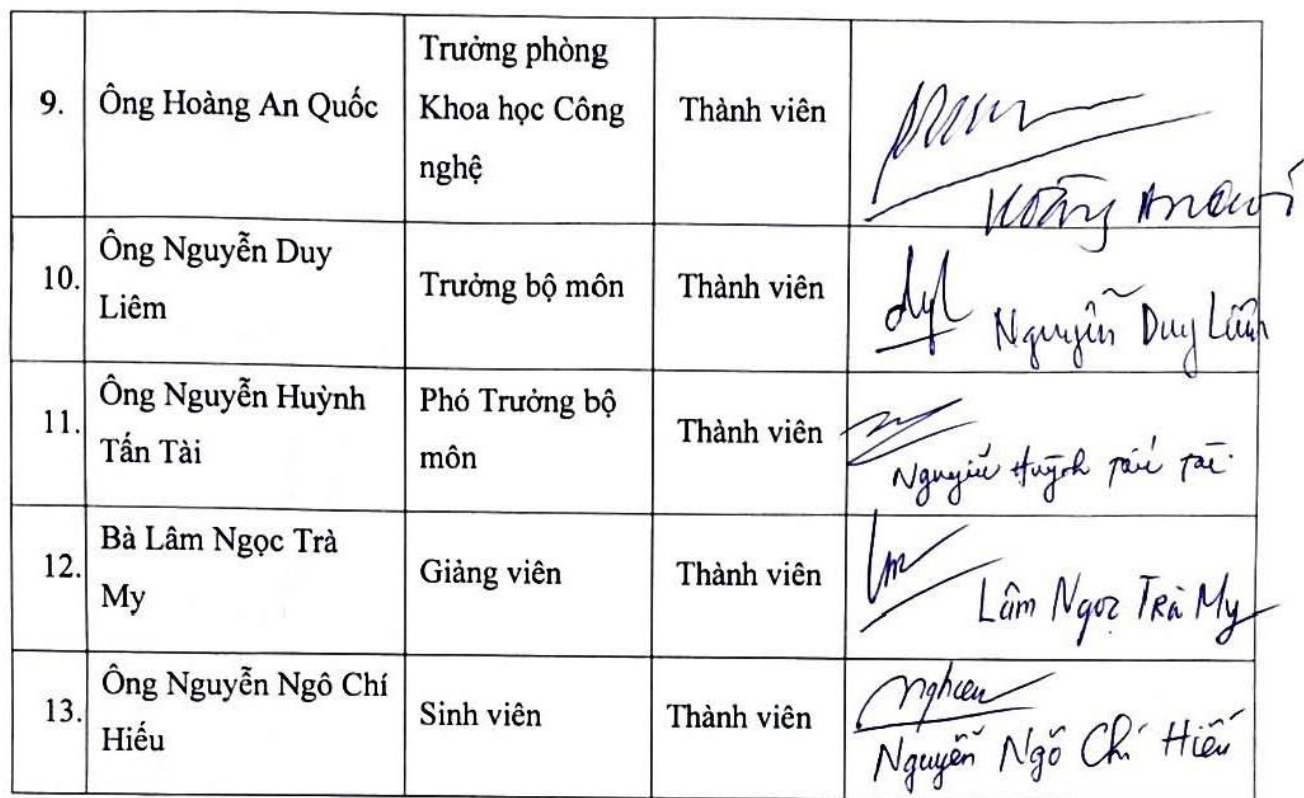 9. Ông Hoàng An Quốc
Trưởng phòng
Khoa học Công
nghệ
Thành viên
Hoàng An Quốc
10. Ông Nguyễn Duy
Liêm
Trưởng bộ môn
Thành viên
Nguyễn Duy Liêm
11. Ông Nguyễn Huỳnh
Tấn Tài
Phó Trưởng bộ
môn
Thành viên
Nguyễn Huỳnh Tấn Tài
12. Bà Lâm Ngọc Trà
My
Giảng viên
Thành viên
Lâm Ngọc Trà My
13. Ông Nguyễn Ngô Chí
Hiếu
Sinh viên
Thành viên
Nguyễn Ngô Chí Hiếu